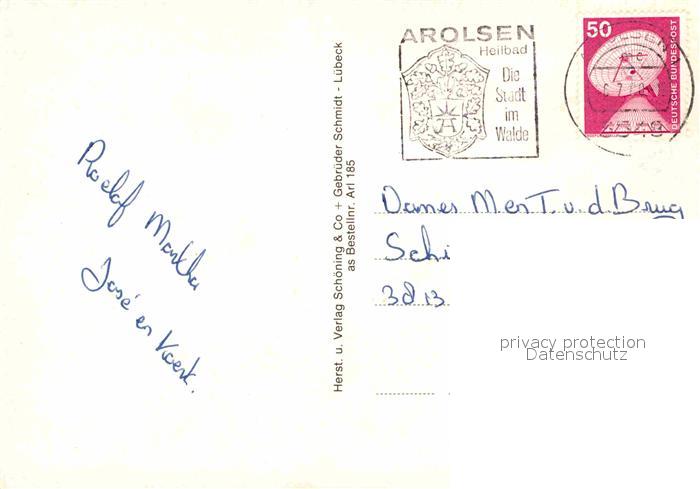 Roelof Martha
José en Koert.
Herst. u. Verlag Schöning & Co + Gebrüder Schmidt - Lübeck
as Bestellnr. Arl 185
AROLSEN
Heilbad
Die
Stadt
im
Walde
50
DEUTSCHE BUNDESPOST
Dames M en T. v. d. Brug
Schi
3813
privacy protection
Datenschutz